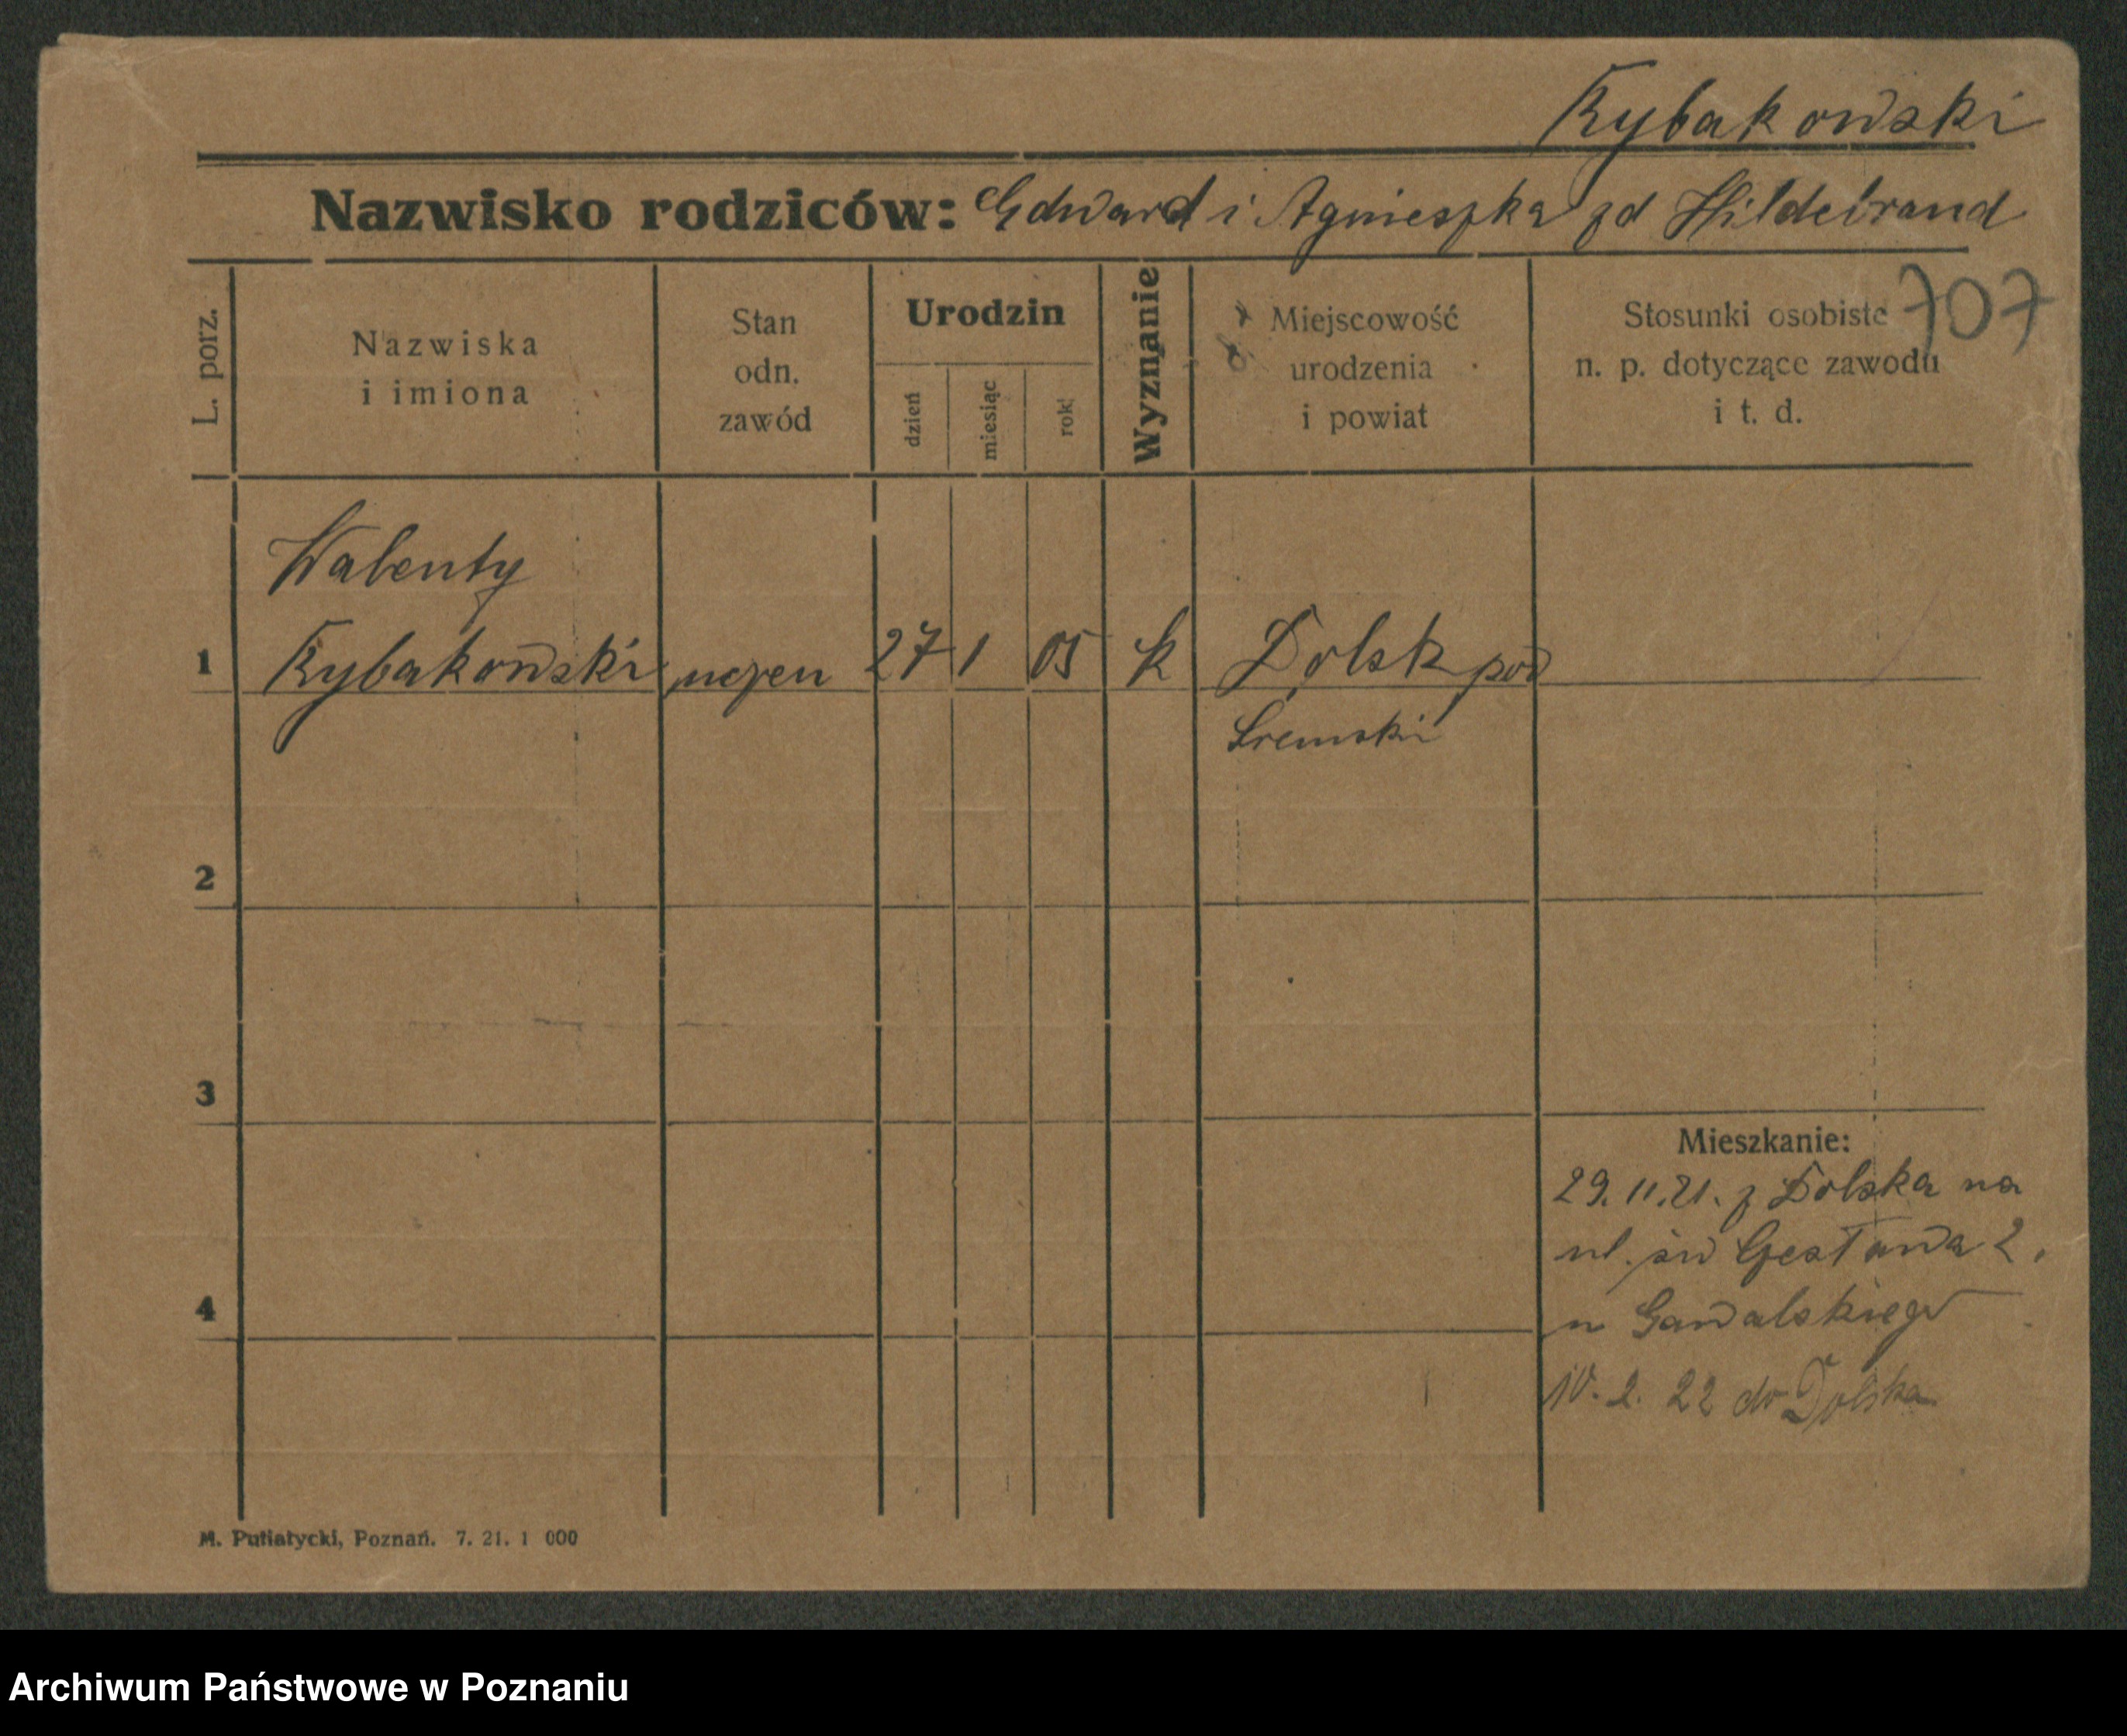 Rybakowski
Nazwisko rodziców: Edward i Agnieszka zd Hildebrand
707
L. porz.
Nazwiska
i imiona
Stan
odn.
zawód
Urodzin
dzień
miesiąc
rok
Wyznanie
Miejscowość
urodzenia
i powiat
Stosunki osobiste
n. p. dotyczące zawodu
i t. d.
Walenty
1 Rybakowski uczen 27 1 05 k Dolsk pow
Sremski
2
3
Mieszkanie:
29. 11. 21. z Dolska na
ul. św 2.
4
u Gawalskiego
10. 2. 22 do Dolska
M. Putiatycki, Poznań. 7. 21. 1 000
Archiwum Państwowe w Poznaniu